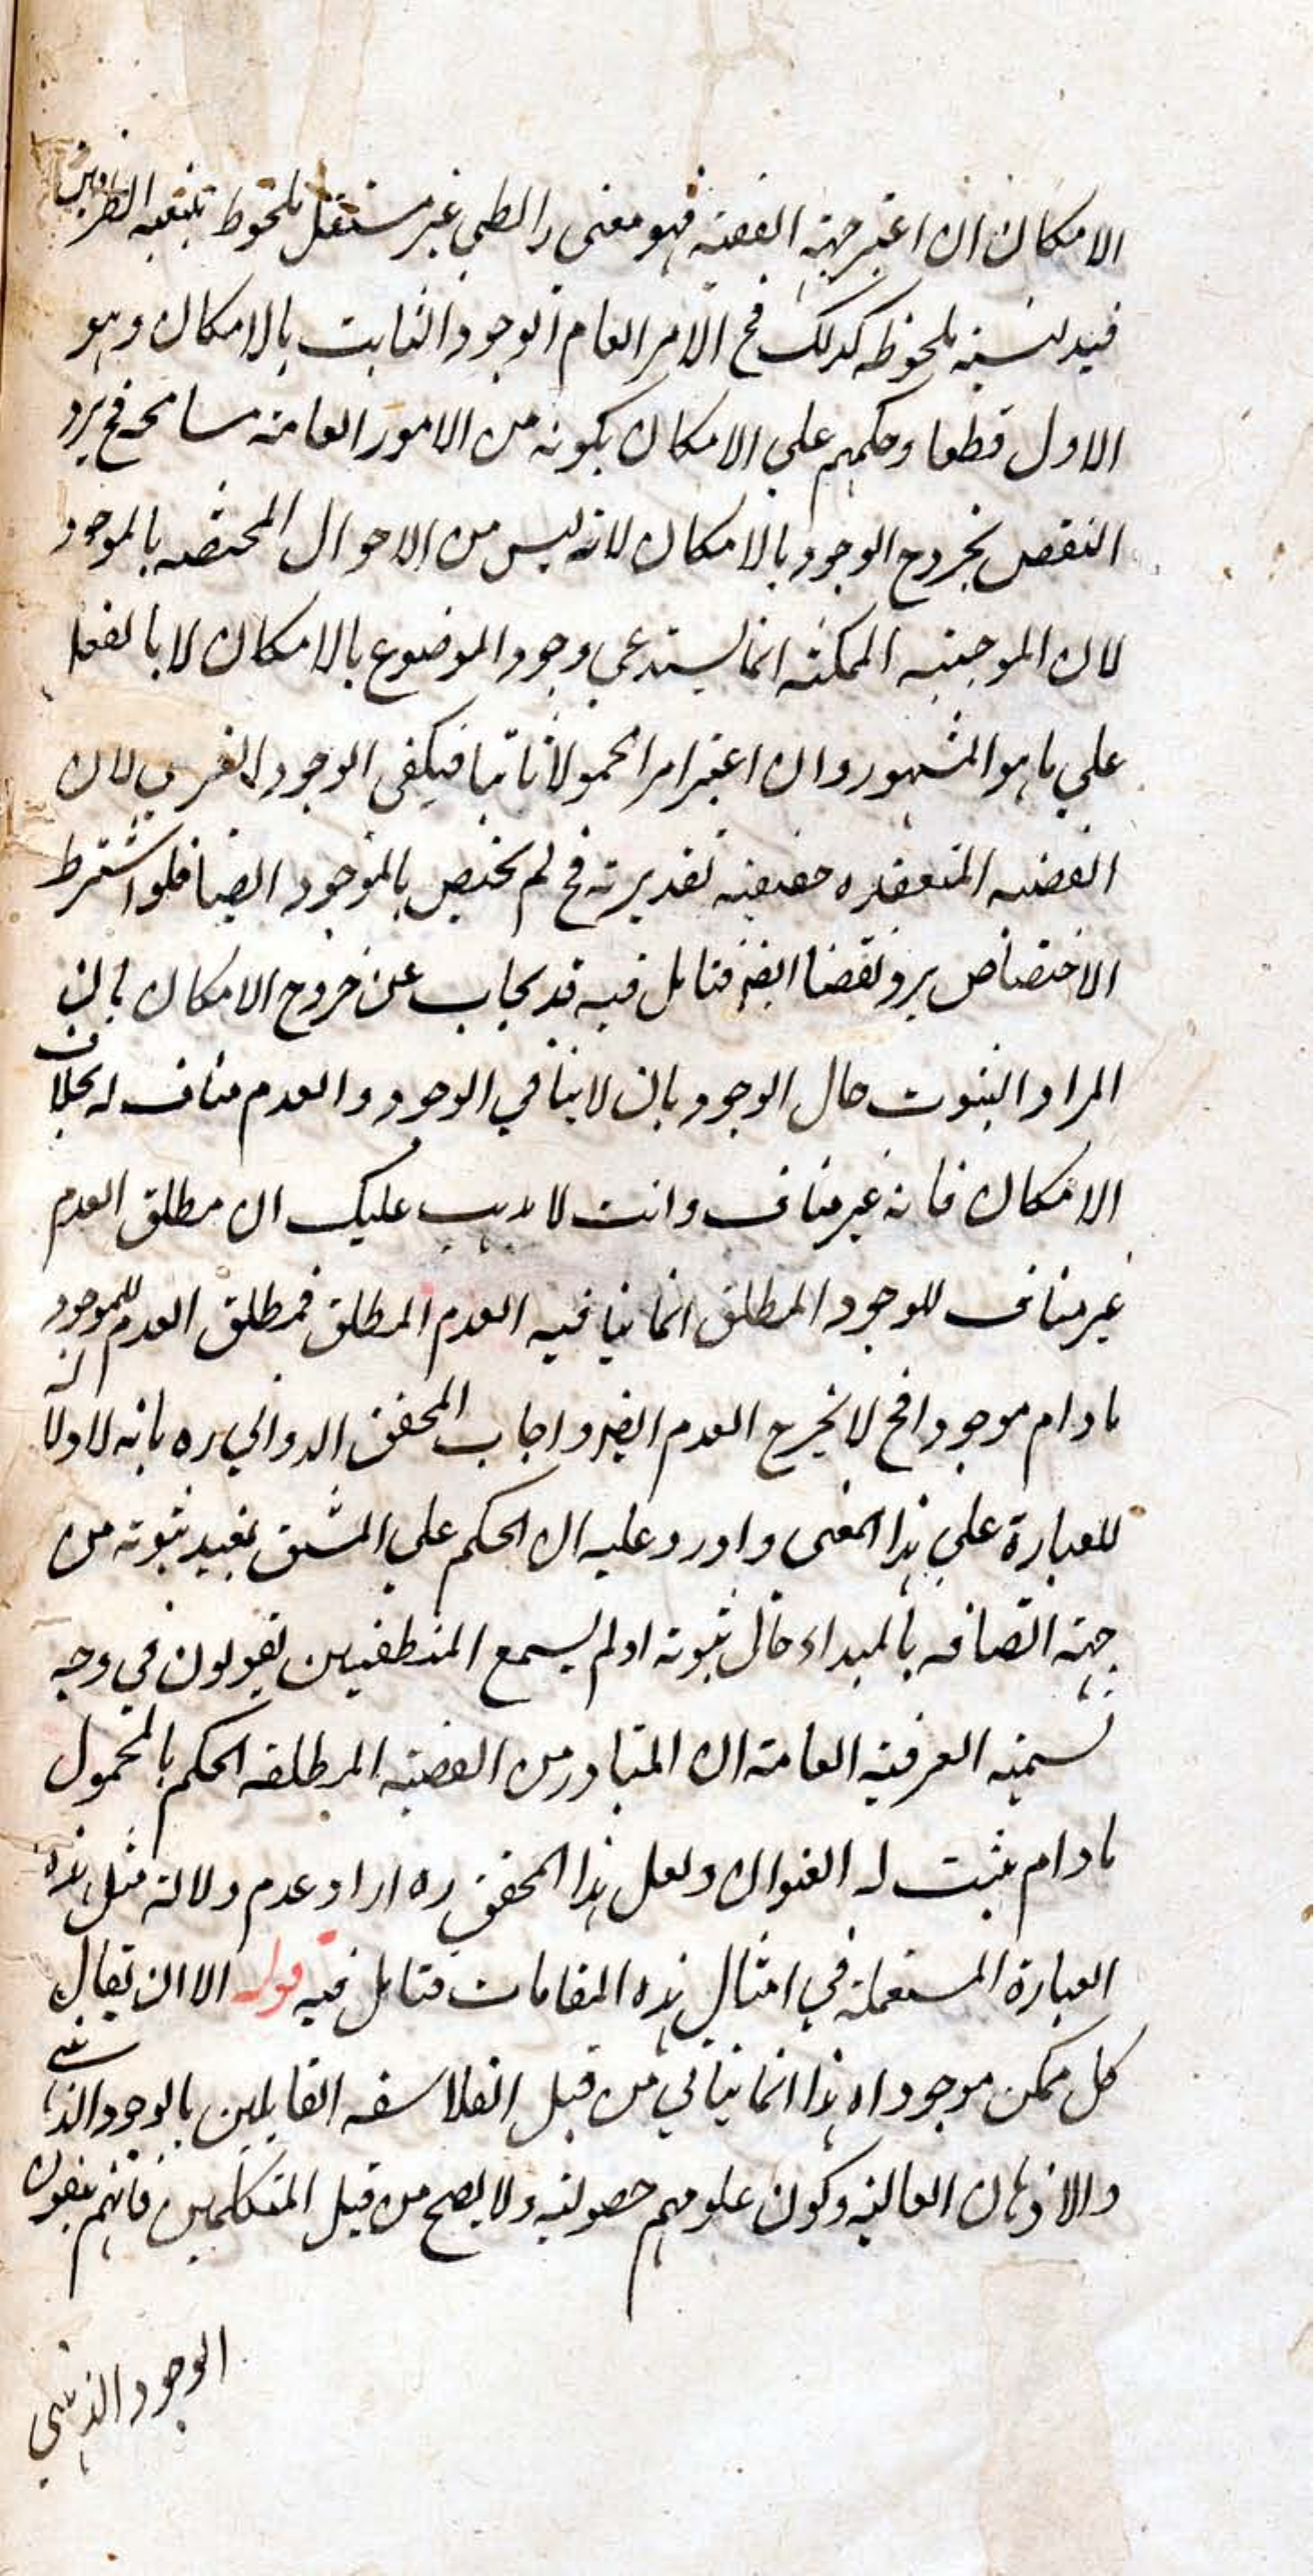 الامكان ان اعتبر جهة القضية فهو معنى رابطي غير مستقل ملحوظ بتبعية الطرفين
فيه نسبة ملحوظه كذلك فح الامر العام الوجود الثابت بالامكان وهو
الاول قطعا وحكمهم على الامكان بكونه من الامور العامة مسامحه فح يرد
النقض بخروج الوجود بالامكان لانه ليس من الاحوال المختصه بالموجود
لان الموجبه الممكنه انما يستدعي وجود الموضوع بالامكان لا بالفعل
على ما هو المشهور وان اعتبر امرا محمولا ثابتا فيكفى الوجود الفرضي لان
القضيه المنعقده حقيقيه تقديرية فح لم يختص بالموجود ايضا فلو اشترط
الاختصاص يرد نقضا ايضا فتامل فيه قد يجاب عن خروج الامكان بان
المراد الثبوت حال الوجود بان لا ينافي الوجود والعدم مناف له بخلاف
الامكان فانه غير مناف وانت لا يذهب عليك ان مطلق العدم
غير مناف للوجود المطلق انما ينافيه العدم المطلق فمطلق العدم للموجود
مادام موجودا فح لا يخرج العدم ايضا واجاب المحقق الدواني ره بانه لا دلالة
للعبارة على هذا المعنى واورد عليه ان الحكم على المشتق يفيد ثبوته من
جهة اتصافه بالمبداء حال ثبوته اولم يسمع المنطقيين يقولون في وجه
تسمية العرفية العامة ان المتبادر من القضية المطلقه الحكم بالمحمول
مادام يثبت له العنوان ولعل هذا المحقق ره اراد عدم دلالة مثل هذه
العبارة المستعملة في امثال هذه المقامات فتامل فيه قوله الا ان يقال
كل ممكن موجود اه هذا انما يتاتي من قبل الفلاسفه القايلين بالوجود الذهني
والاذهان العالية وكون علومهم حصولية ولا يصح من قبل المتكلمين فانهم ينفون
الوجود الذهني